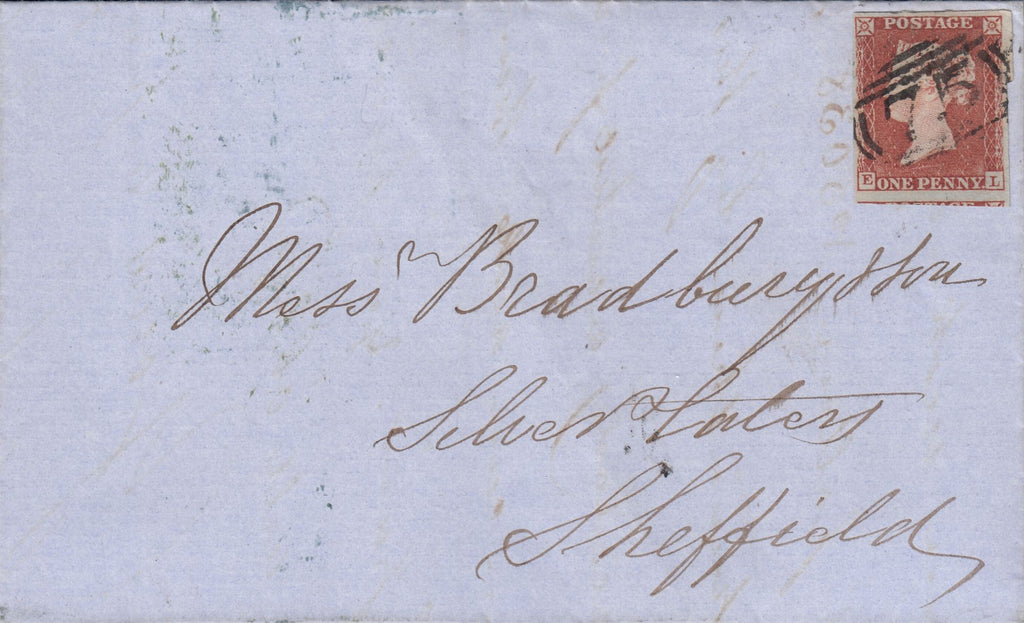 POSTAGE
E ONE PENNY L
Mess Bradbury & Son
Silver Platers
Sheffield